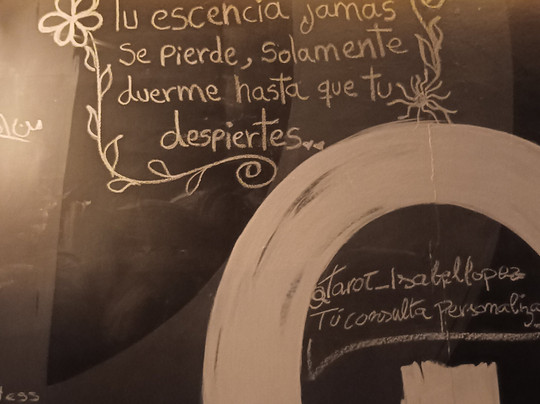 Tu escencia jamas
se pierde, solamente
duerme hasta que tu
despiertes..
@tarot_Isabellopez
Tú consulta personaliza